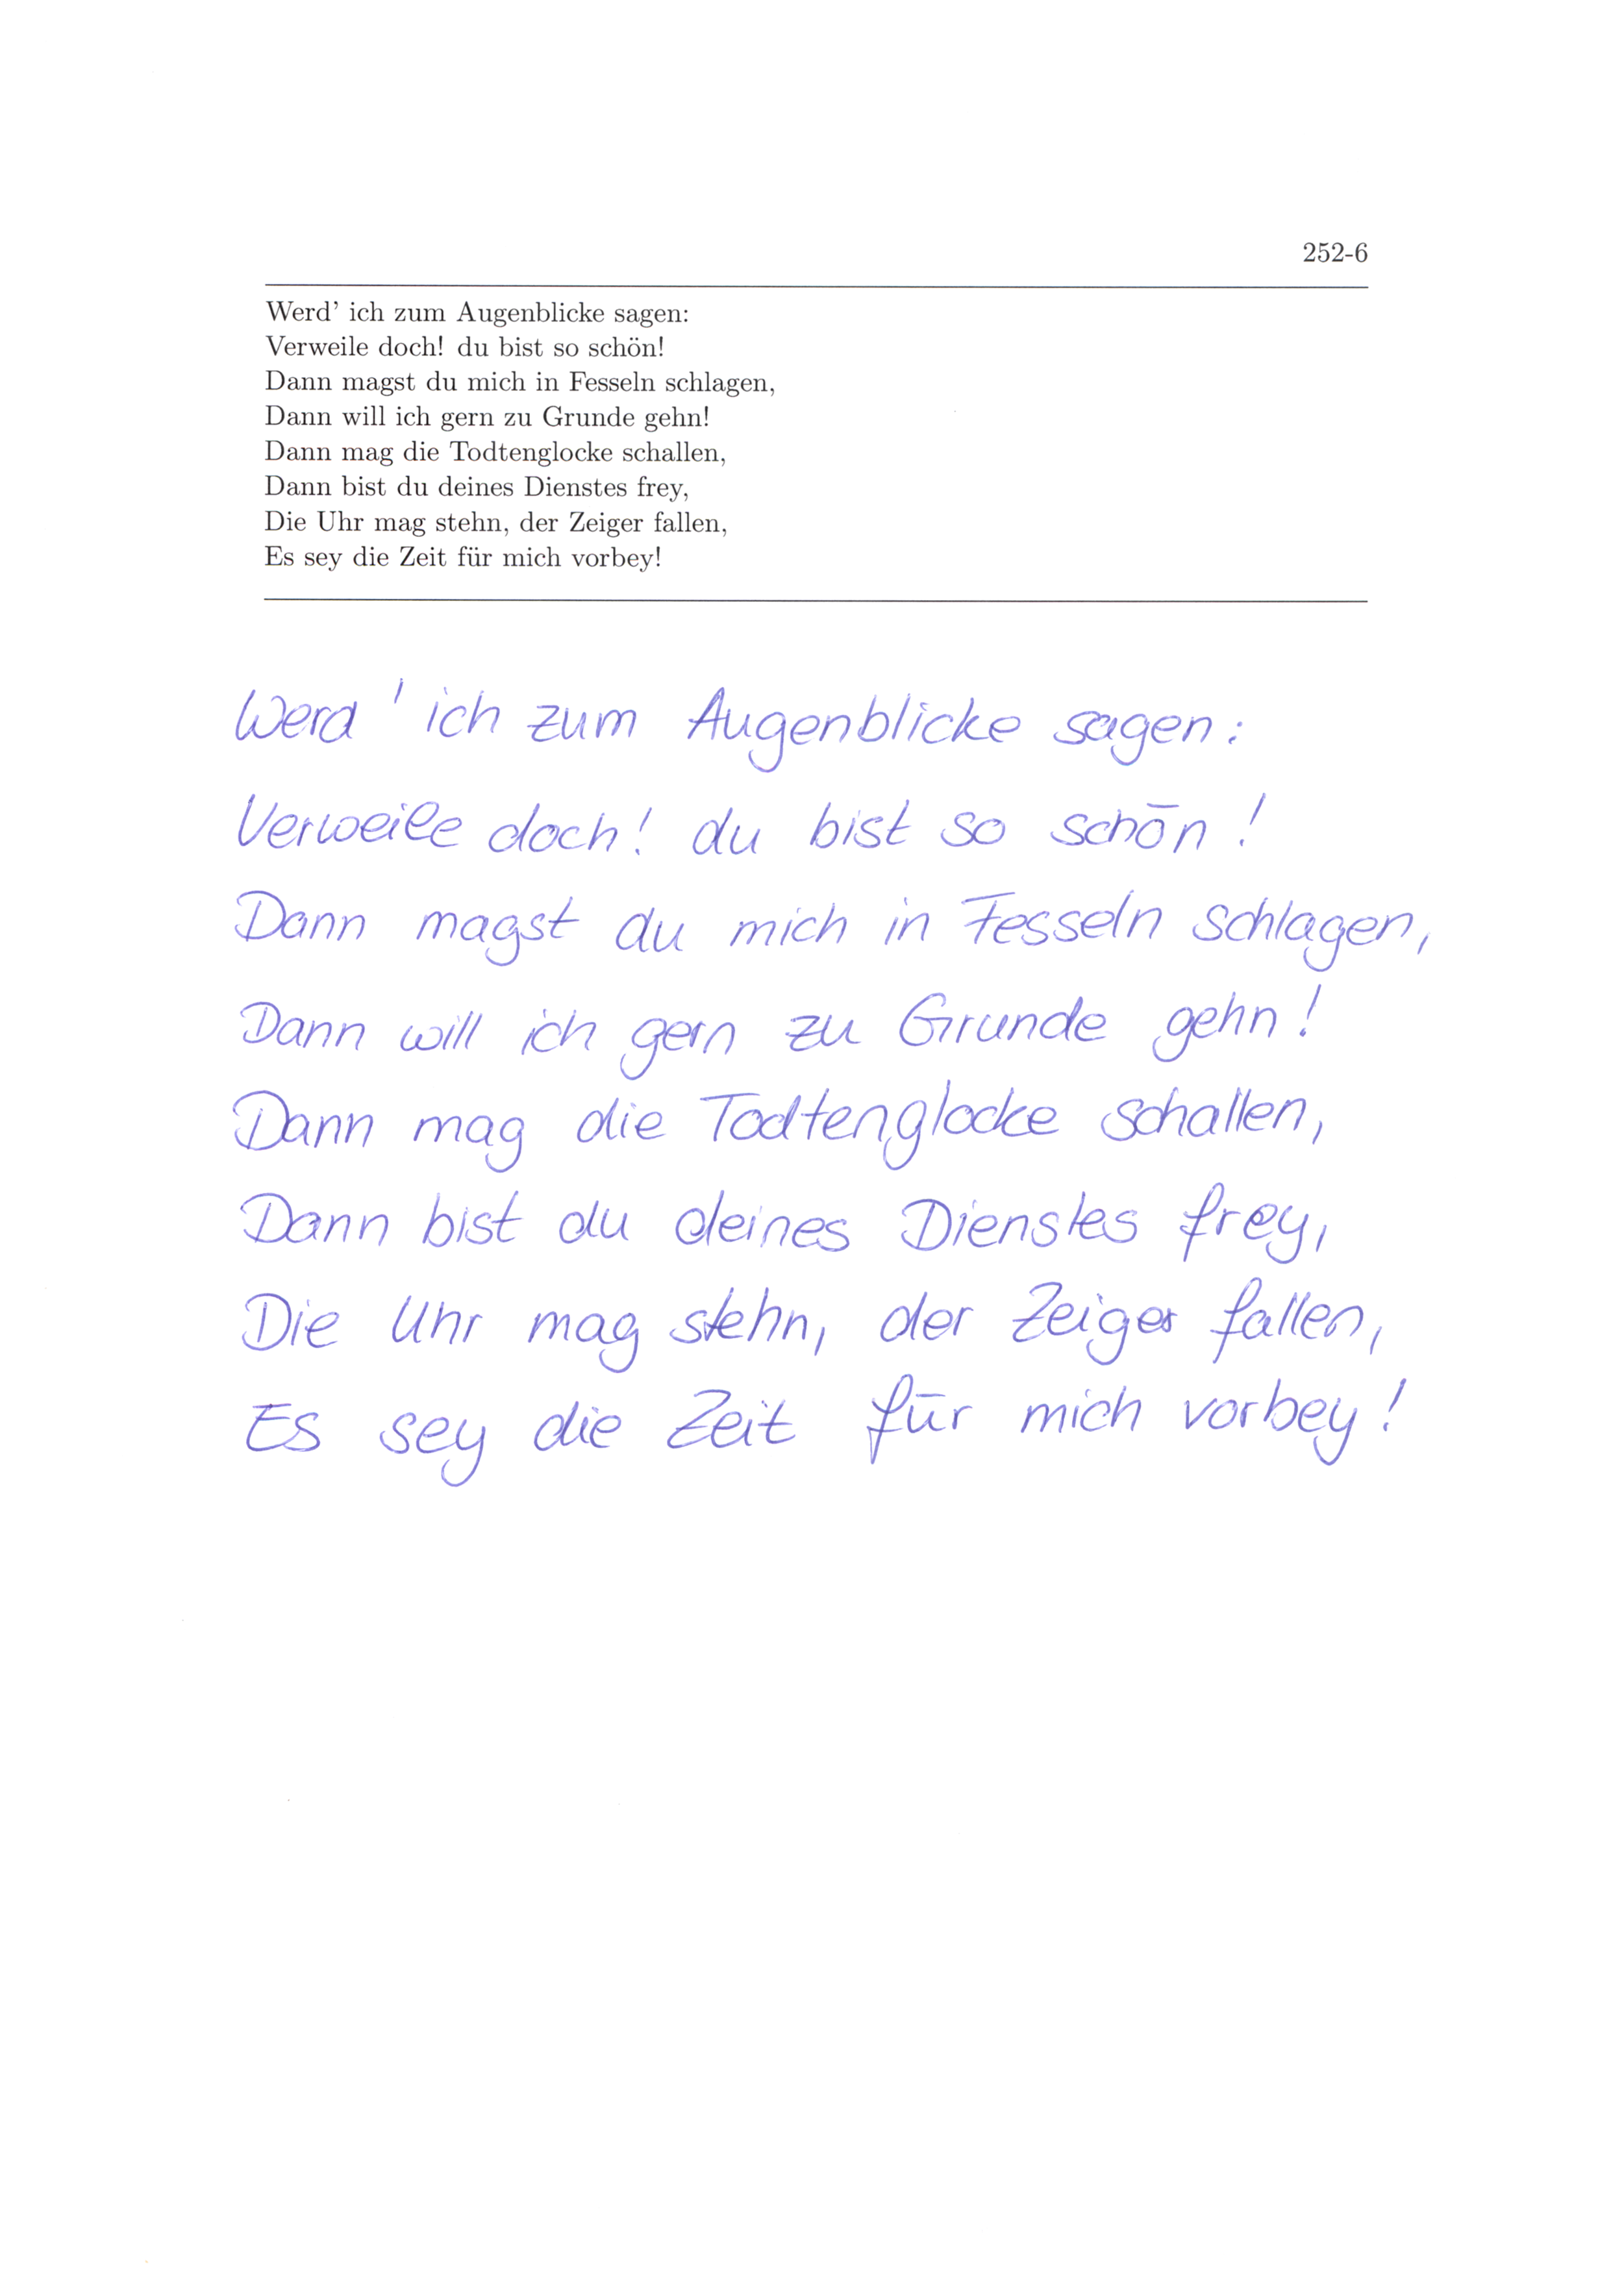 252-6
Werd' ich zum Augenblicke sagen:
Verweile doch! du bist so schön!
Dann magst du mich in Fesseln schlagen,
Dann will ich gern zu Grunde gehn!
Dann mag die Todtenglocke schallen,
Dann bist du deines Dienstes frey,
Die Uhr mag stehn, der Zeiger fallen,
Es sey die Zeit für mich vorbey!
Werd' ich zum Augenblicke sagen:
Verweile doch! du bist so schön!
Dann magst du mich in Fesseln schlagen,
Dann will ich gern zu Grunde gehn!
Dann mag die Todtenglocke schallen,
Dann bist du deines Dienstes frey,
Die Uhr mag stehn, der Zeiger fallen,
Es sey die Zeit für mich vorbey!